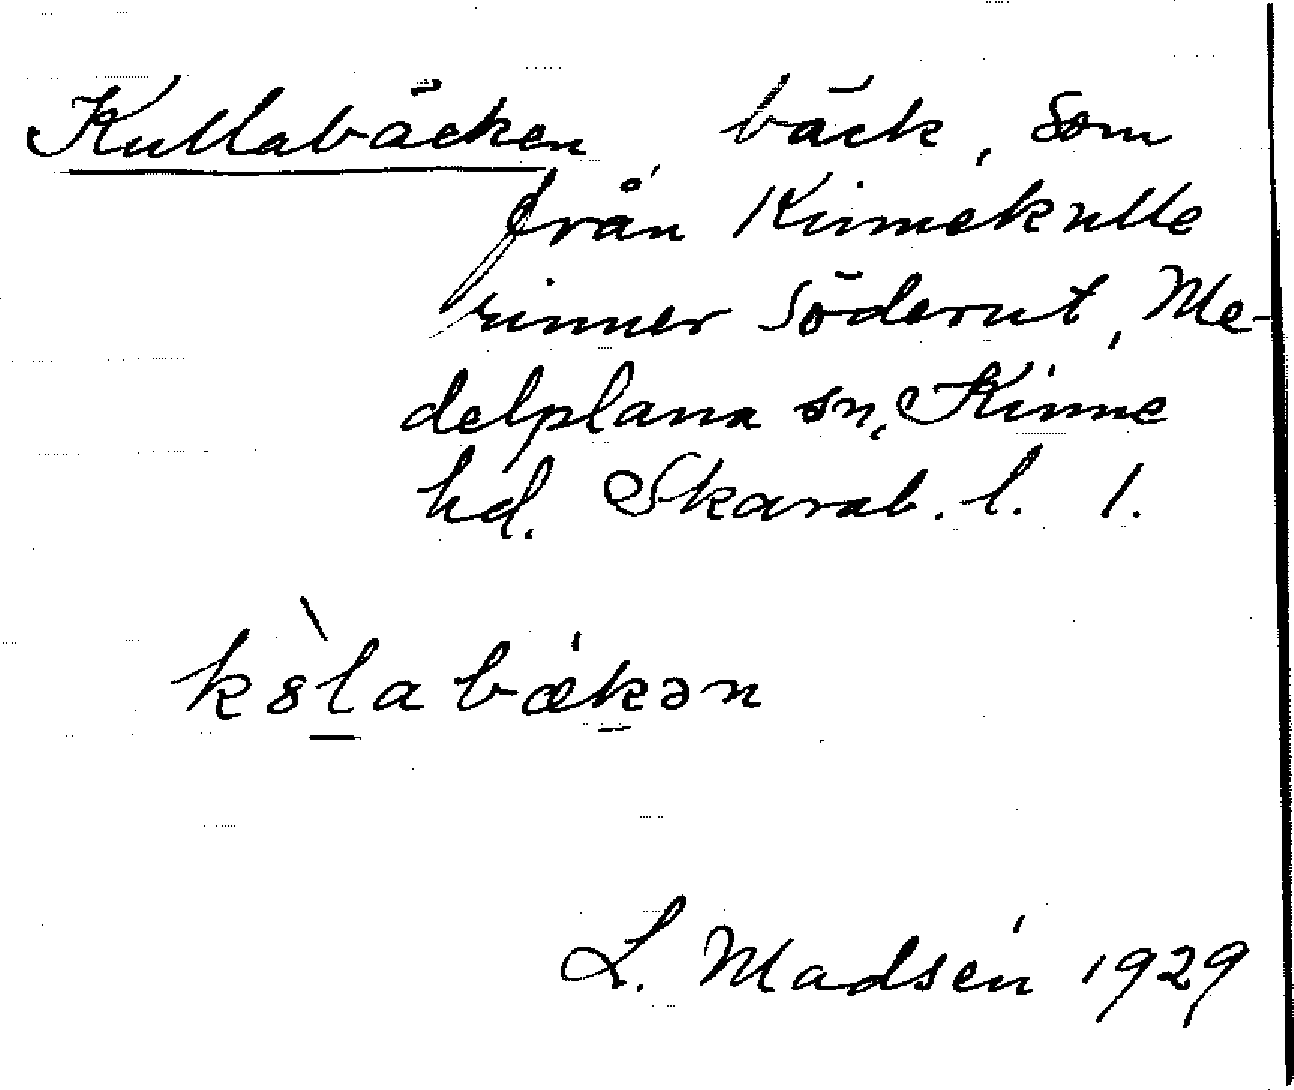 Kullabäcken, bäck, som
från Kinnekulle
rinner söderut, Me-
delplana sn, Kinne
hd. Skarab. l. 1.
kòlabækən
L. Madsén 1929